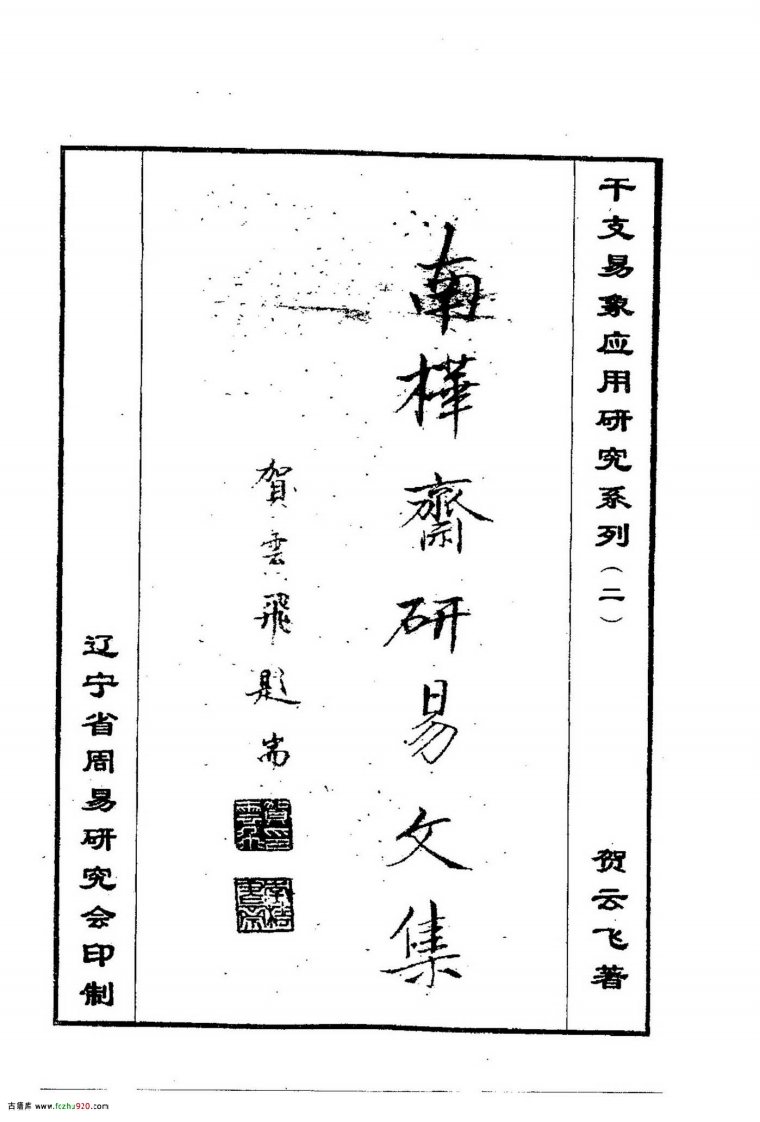 干支易象应用研究系列（二）
贺云飞著
南樺齋研易文集
賀雲飛題耑
辽宁省周易研究会印制
古籍库 www.fczhu920.com